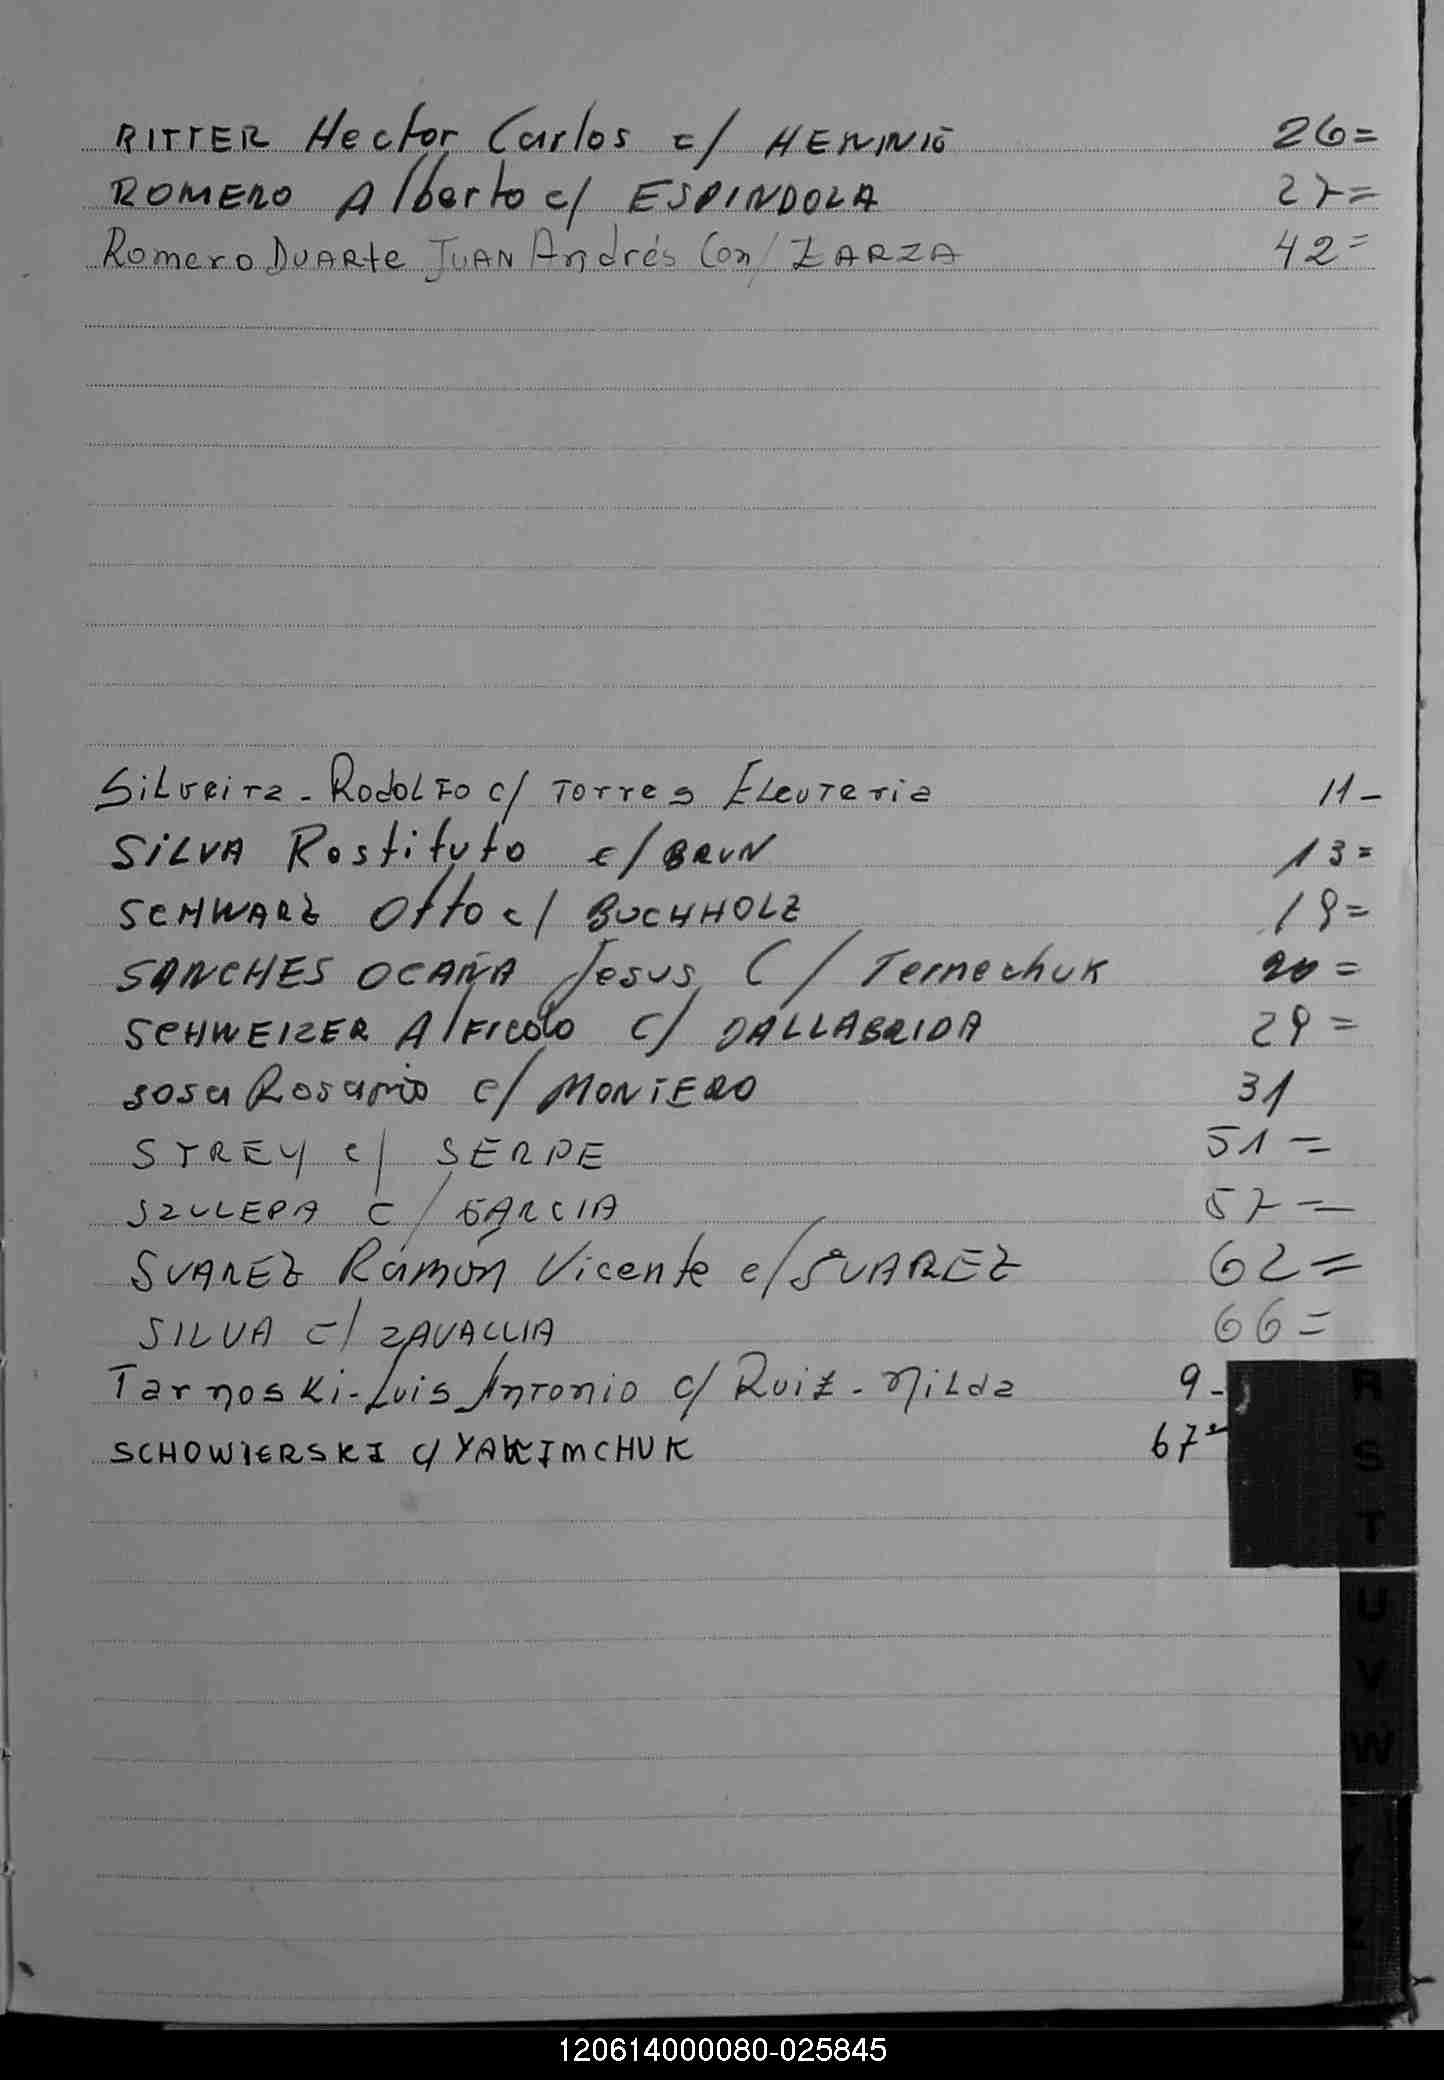 RITTER Hector Carlos c/ HENNIG 26=
ROMERO Alberto c/ ESPINDOLA 27=
Romero DUARte JUAN Andrés Con/ ZARZA 42=
SiLveira - RodoLFo c/ Torres ELeuTeria 11-
SiLVA Rostituto c/ BRUN 13=
SCHWARZ Otto c/ BUCHHOLZ 19=
SANCHES OCAÑA Jesus C/ Ternechuk 20=
SCHWEIZER Alfredo C/ DALLABRIDA 29=
sosa Rosario c/ MONTERO 31
STREY c/ SERPE 51=
SZULEPA C/ GARCIA 57=
SUAREZ Ramón Vicente c/ SUAREZ 62=
SILVA c/ ZAVALLIA 66=
TarnosKi - Luis AnTonio c/ Ruiz - NiLda 9-
SCHOWIERSKI c/ YAKIMCHUK 67=
R
S
T
U
V
W
Y
Z
120614000080-025845